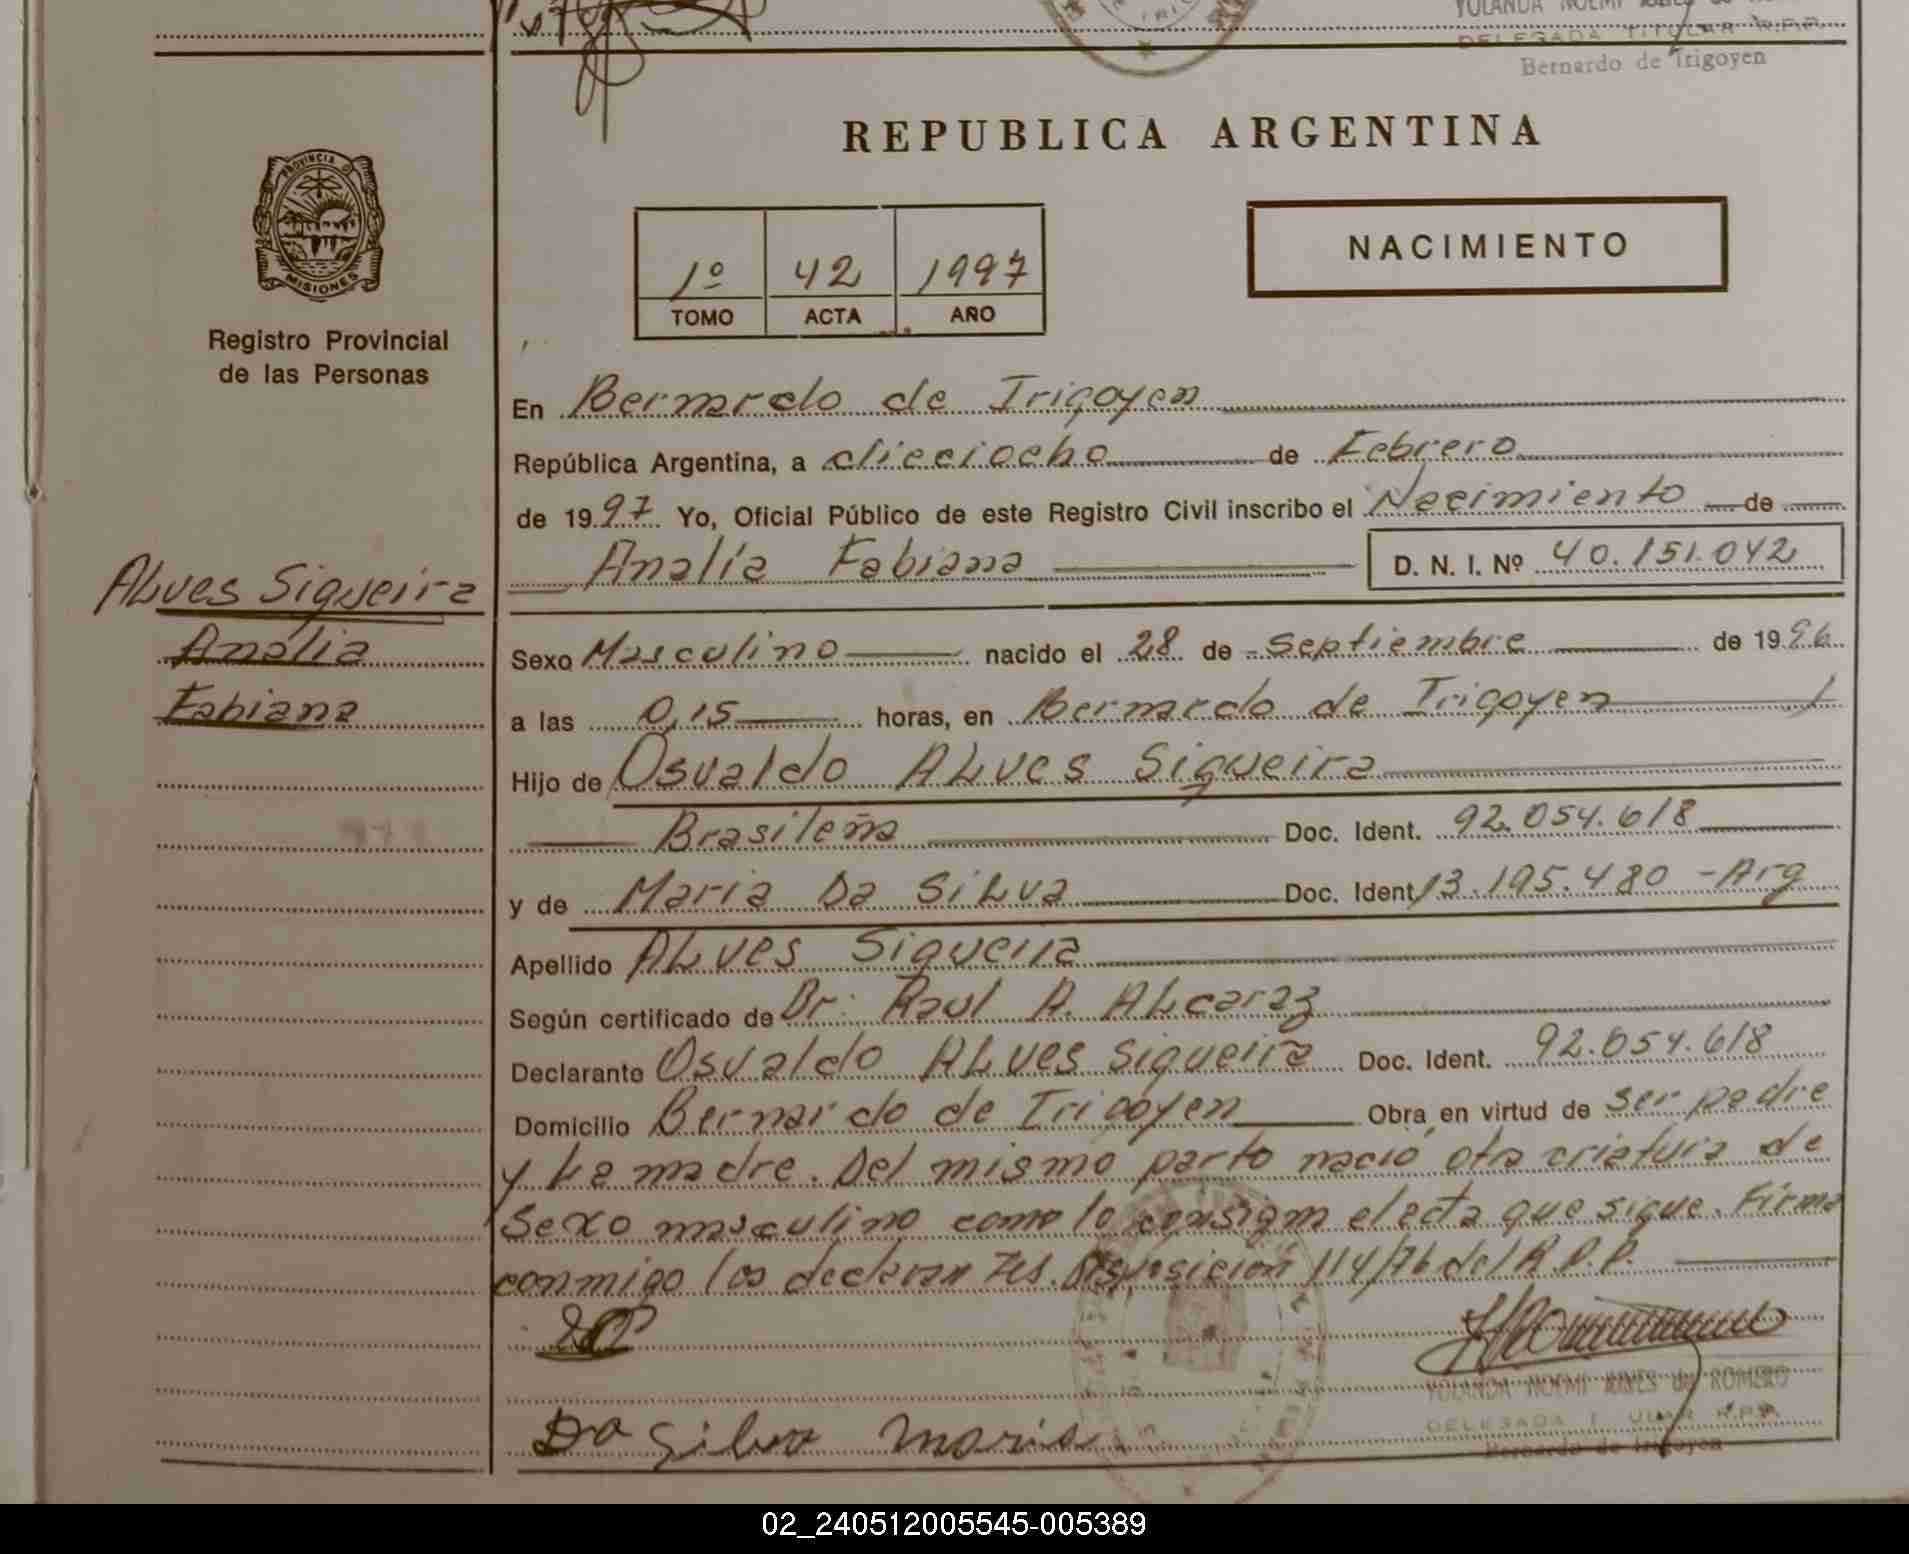 YOLANDA NOEMI
DELEGADA TITULAR R.P.P.
Bernardo de Irigoyen
REPUBLICA ARGENTINA
PROVINCIA
MISIONES
Registro Provincial
de las Personas
1º 42 1997
TOMO ACTA AÑO
NACIMIENTO
En Bernardo de Irigoyen
República Argentina, a dieciocho de Febrero
de 1997 Yo, Oficial Público de este Registro Civil inscribo el Nacimiento de
Analía Fabiana D. N. I. Nº 40.151.042
ALves Siqueira
Analia
Fabiana
Sexo Masculino nacido el 28 de septiembre de 1996
a las 0,15 horas, en Bernardo de Irigoyen
Hijo de Osvaldo ALves Siqueira
Brasileña Doc. Ident. 92.054.618
y de Maria Da SiLva Doc. Ident 13.195.480 - Arg
Apellido ALves Siqueira
Según certificado de Dr: Raul A. ALcaraz
Declarante Osvaldo ALves Siqueira Doc. Ident. 92.054.618
Domicilio Bernardo de Irigoyen Obra en virtud de ser padre
y La madre. Del mismo parto nació otra criatura de
Sexo masculino como lo consigna el acta que sigue. Firma
conmigo los declaran tes. Disposición 114/76 del R.P.P.
YOLANDA NOEMI de ROMERO
DELEGADA TITULAR R.P.P.
Bernardo de Irigoyen
Da Silva Maria
02_240512005545-005389